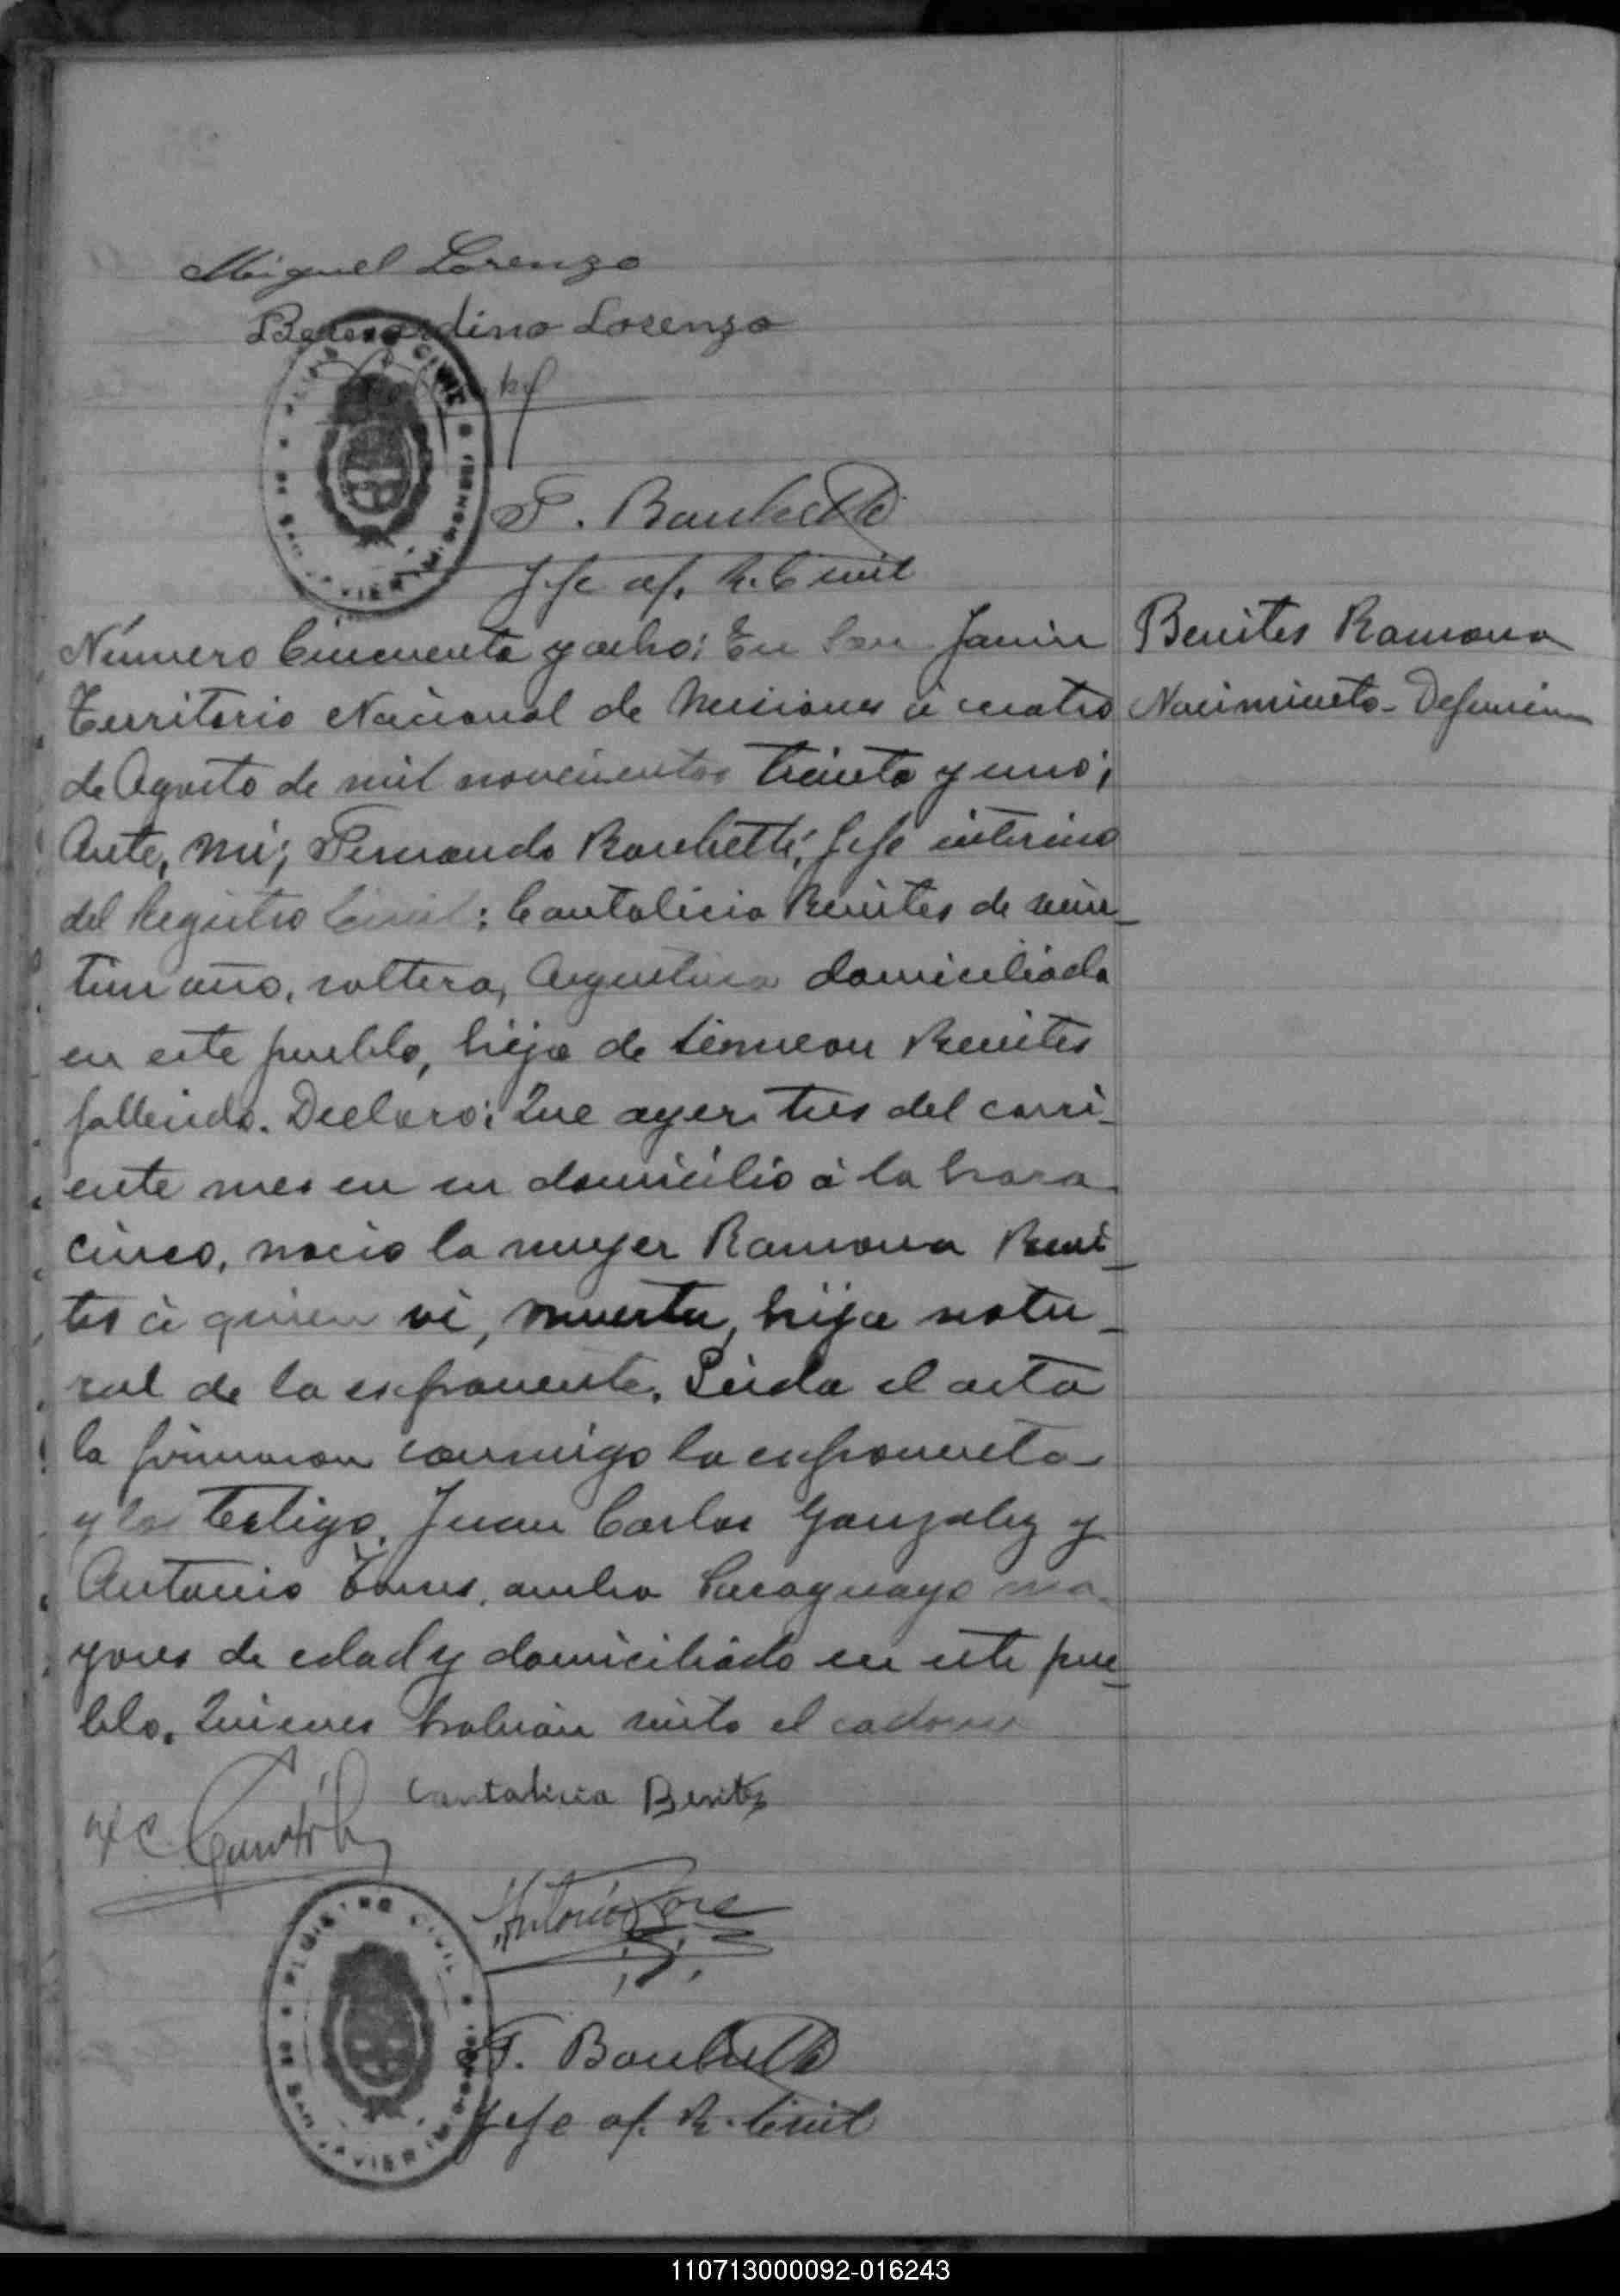 Miguel Lorenzo
Bernardino Lorenzo
F. Banchetti
Jefe of. R. Civil
Número Cincuenta y ocho; En San Javier
Territorio Nacional de Misiones á cuatro
de Agosto de mil novecientos treinta y uno;
Ante, mi; Fernando Banchetti, Jefe interino
del Registro Civil; Cantalicia Benites de vein-
tiun año, soltera, Argentina domiciliada
en este pueblo, hija de Simeon Benites
fallecido. Declaro; Que ayer tres del corri-
ente mes en su domicilio á la hora
cinco, nacio la mujer Ramona Beni-
tes á quien vi, muerta, hija natu-
ral de la exponente. Leida el acta
la firmaron conmigo la exponente
y los testigo. Juan Carlos Gonzalez y
Antonio Torres, ambo Paraguayo ma-
yores de edad y domiciliado en este pue-
blo, Quienes habian visto el cadaver
Benites Ramona
Nacimiento - Defuncion
Cantalicia Benites
Antonio Torre
F. Banchetti
Jefe of. R. Civil
REGISTRO CIVIL
DE SAN JAVIER (MISIONES)
110713000092-016243